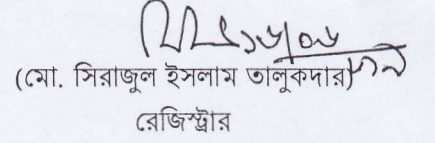 ১৬/০৬
(মো. সিরাজুল ইসলাম তালুকদার)
রেজিস্ট্রার